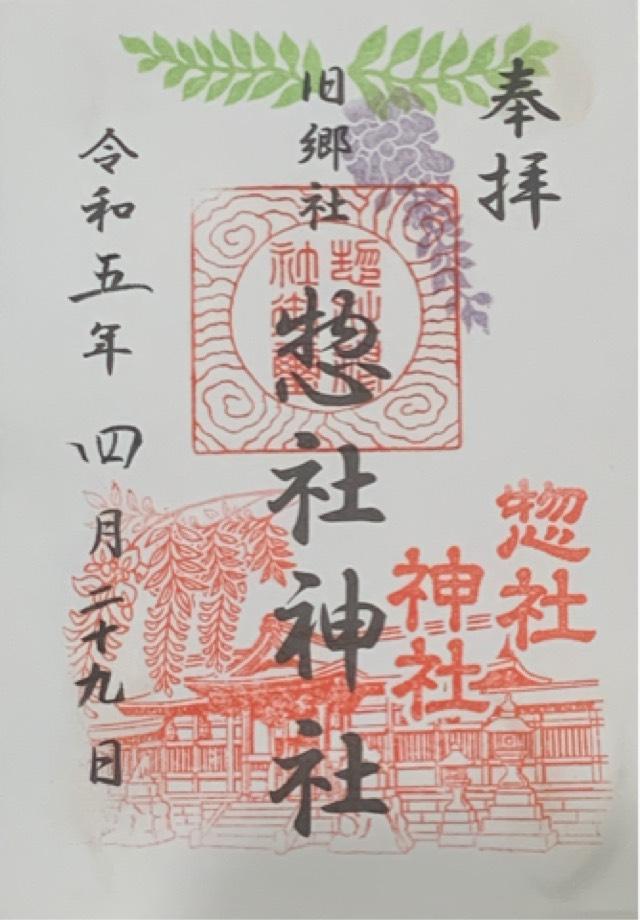 奉拝
旧郷社
惣社神社
惣社
神社
令和五年 四月二十九日